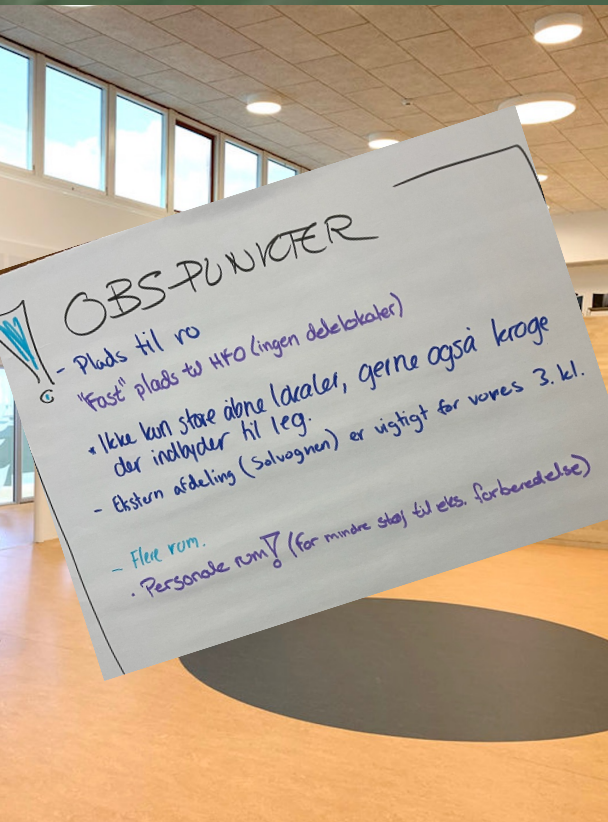 ! OBS-PUNKTER
- Plads til ro
"Fast" plads til HFO (ingen delelokaler)
• Ikke kun store åbne lokaler, gerne også kroge
der indbyder til leg.
- Ekstern afdeling (Solvognen) er vigtigt for vores 3. kl.
- Flere rum.
• Personale rum! (for mindre støj til eks. forberedelse)